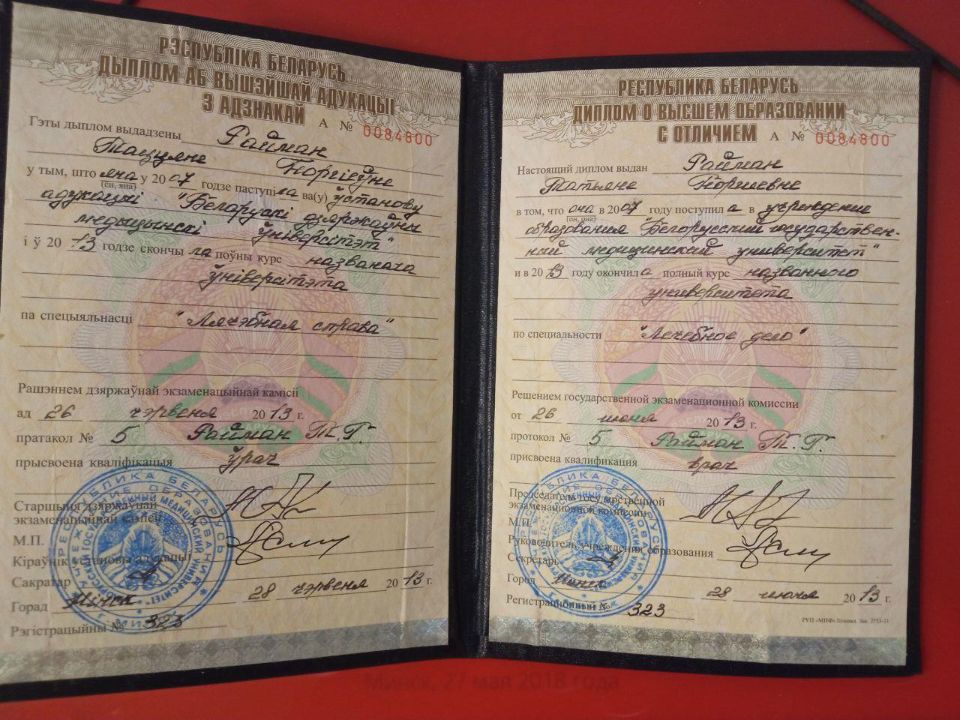 РЭСПУБЛІКА БЕЛАРУСЬ
ДЫПЛОМ АБ ВЫШЭЙШАЙ АДУКАЦЫІ
З АДЗНАКАЙ
А № 0084800
Гэты дыплом выдадзены Райман
Таццяне
у тым, што яна у 2007 годзе паступіла ва(у) ўстанову
(ён, яна)
адукацыі "Беларускі дзяржаўны
медыцынскі ўніверсітэт"
і ў 2013 годзе скончыла поўны курс названага
ўніверсітэта
па спецыяльнасці "Лячэбная справа"
Рашэннем дзяржаўнай экзаменацыйнай камісіі
ад 26 чэрвеня 2013 г.
пратакол № 5 Райман Т.Г.
прысвоена кваліфікацыя ўрач
Старшыня дзяржаўнай
экзаменацыйнай камісіі
М.П.
Кіраўнік установы адукацыі
Сакратар
Горад Мінск 28 чэрвеня 2013 г.
Рэгістрацыйны № 323
РЕСПУБЛИКА БЕЛАРУСЬ
ДИПЛОМ О ВЫСШЕМ ОБРАЗОВАНИИ
С ОТЛИЧИЕМ
А № 0084800
Настоящий диплом выдан Райман
Татьяне
в том, что она в 2007 году поступила в учреждение
(он, она)
образования "Белорусский государствен-
ный медицинский университет"
и в 2013 году окончила полный курс названного
университета
по специальности "Лечебное дело"
Решением государственной экзаменационной комиссии
от 26 июня 2013 г.
протокол № 5 Райман Т.Г.
присвоена квалификация врач
Председатель государственной
экзаменационной комиссии
М.П.
Руководитель учреждения образования
Секретарь
Город Минск 28 июня 2013 г.
Регистрационный № 323
Минск, 27 мая 2018 года